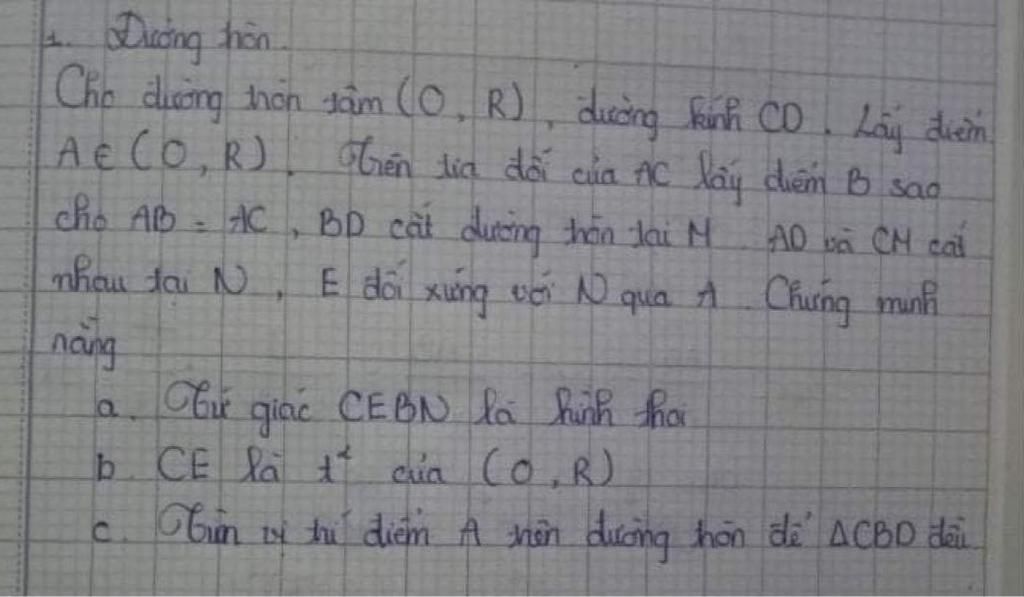 1. Đường tròn.
Cho đường tròn tâm (O, R), đường kính CD. Lấy điểm
A ∈ (O, R). Trên tia đối của AC lấy điểm B sao
cho AB = AC, BD cắt đường tròn tại M AD và CM cắt
nhau tại N, E đối xứng với N qua A. Chứng minh
rằng
a. Tứ giác CEBN là hình thoi
b. CE là t² của (O, R)
c. Tìm vị trí điểm A trên đường tròn để ΔCBD đều